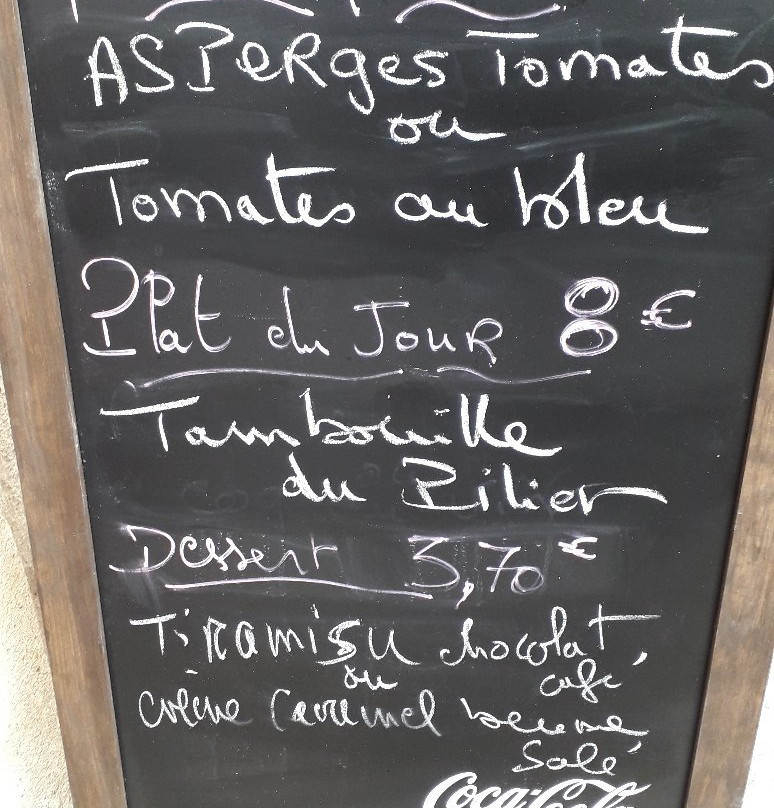 ASPERges Tomates
ou
Tomates au bleu
Plat du Jour 8 €
Tambouille
du Pilier
Dessert 3,70 €
Tiramisu chocolat,
ou café
crème Caramel beurre
Salé
Coca-Cola